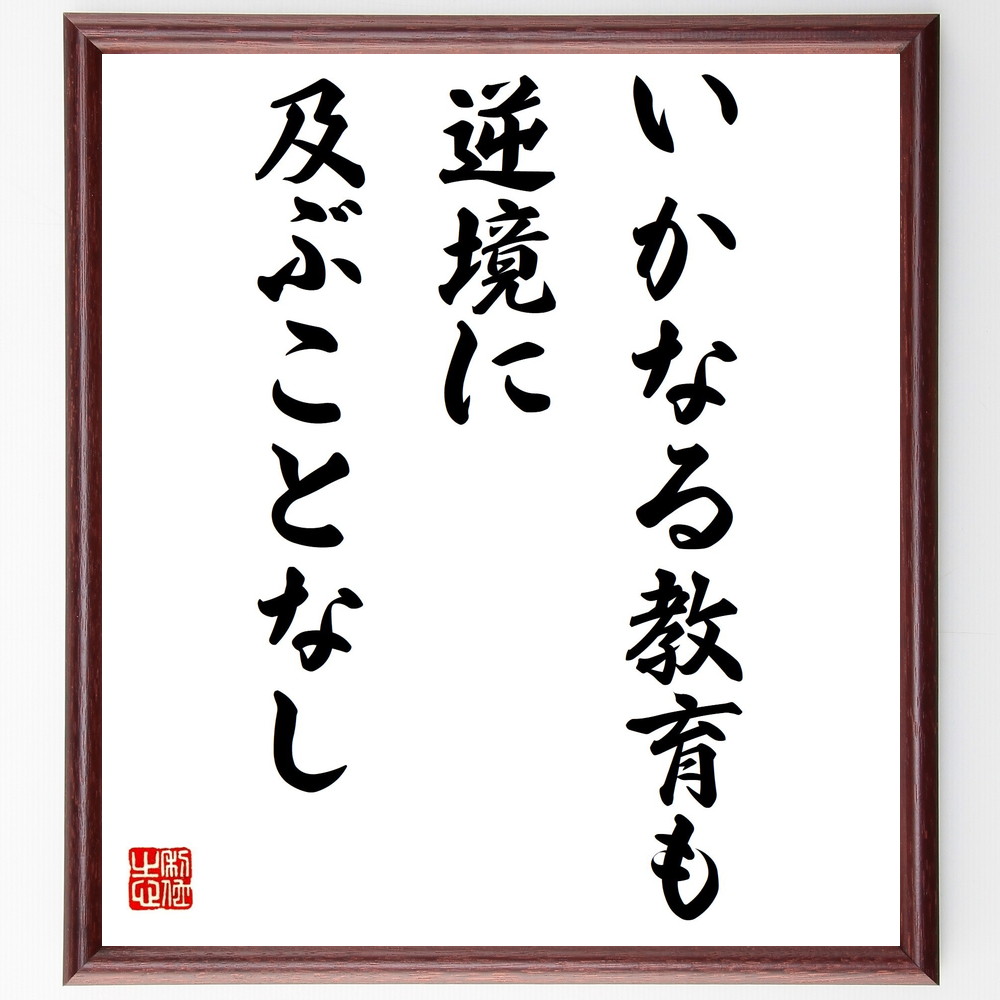 いかなる教育も
逆境に
及ぶことなし